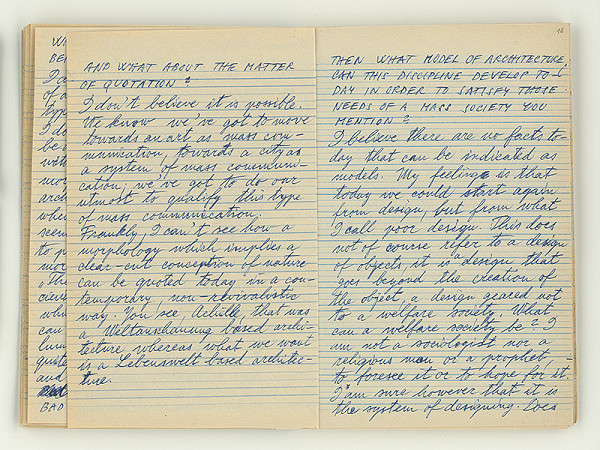 AND WHAT ABOUT THE MATTER
OF QUOTATION?
I don't believe it is possible.
We know we've got to move
towards an art as mass com-
munication, towards a city as
a system of mass communi-
cation; we've got to do our
utmost to qualify this type
of mass communication.
Frankly, I can't see how a
morphology which implies a
clear-cut conception of nature
can be quoted today in a con-
temporary, non-revivalistic
way. You see, Achille, that was
a Weltanschauung based archi-
tecture whereas what we want
is a Lebenswelt based architec-
ture.
18
THEN WHAT MODEL OF ARCHITECTURE
CAN THIS DISCIPLINE DEVELOP TO-
DAY IN ORDER TO SATISFY THOSE
NEEDS OF A MASS SOCIETY YOU
MENTION?
I believe there are no facts to-
day that can be indicated as
models. My feeling is that
today we could start again
from design, but from what
I call poor design. This does
not of course refer to a design
of objects, it is a design that
goes beyond the creation of
the object, a design geared not
to a welfare society. What
can a welfare society be? I
am not a sociologist nor a
religious man or a prophet
to foresee it or to hope for it.
I am sure however that it is
the system of designing. Does